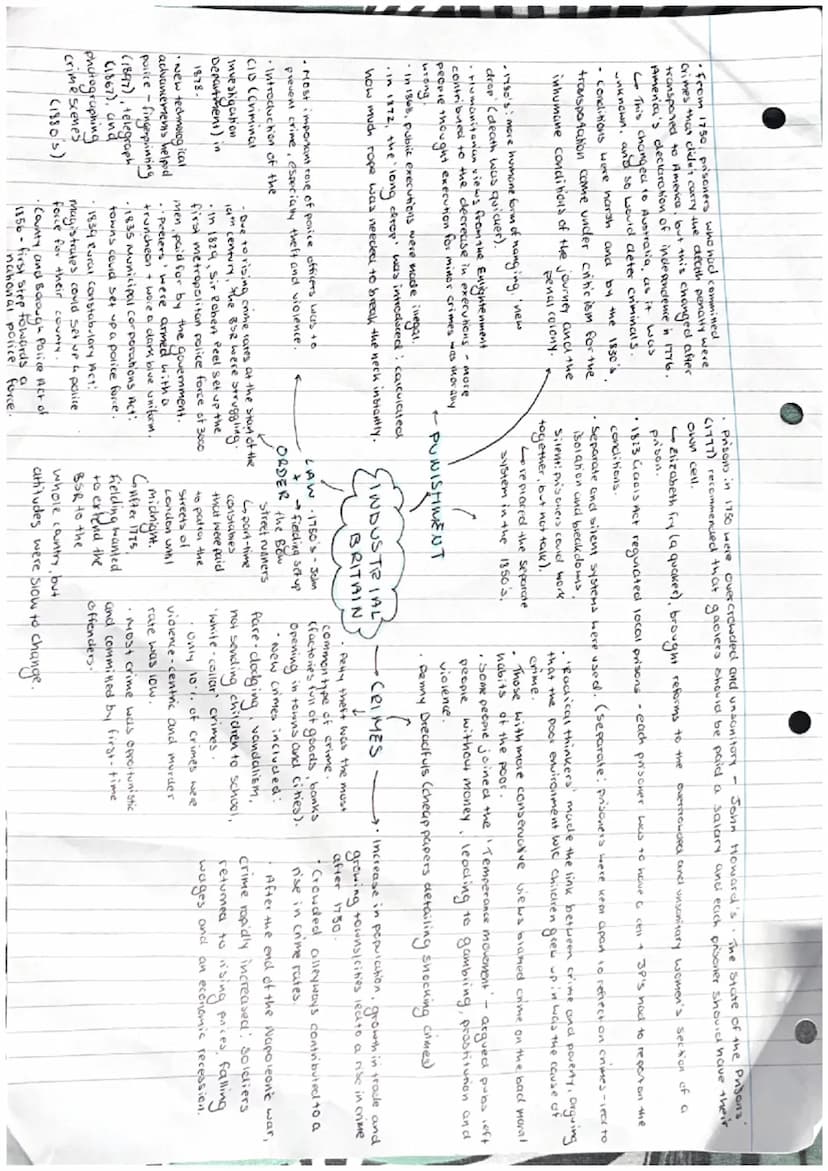 • From 1750, prisoners who had committed
crimes that didn't carry the death penalty were
transported to America, but this changed after
America's declaration of independence in 1776.
↳ This changed to Australia, as it was
unknown, and so would deter criminals.
• Conditions were harsh and by the 1830's,
transportation came under criticism for the
inhumane conditions of the journey and the
penal colony.
• 1780's: more humane form of hanging, 'new
drop' (death was quicker).
• Humanitarian views from the Enlightenment
contributed to the decrease in executions - more
people thought execution for minor crimes was morally
wrong.
• In 1868, public executions were made illegal.
• In 1872, the 'long drop' was introduced: calculated
how much rope was needed to break the neck instantly.
• Prisons in 1750 were overcrowded and unsanitory - John Howard's 'The State of the Prisons'
(1777) recommended that gaolers should be paid a salary and each prisoner should have their
own cell.
↳ Elizabeth Fry (a quaker), brought reforms to the overcrowded and unsanitary women's section of a
prison.
• 1823 Gaols Act regulated local prisons - each prisoner was to have a cell + JP's had to report on the
conditions.
• Separate and silent systems were used. (separate: prisoners were kept apart to reflect on crimes - led to
isolation and breakdowns.
Silent: prisoners could work
together, but not talk).
↳ replaced the separate
system in the 1850's.
PUNISHMENT
INDUSTRIAL
BRITAIN
LAW
+
ORDER
CRIMES
• 'Radical thinkers' made the link between crime and poverty, arguing
that the poor environment w/c children grew up in was the cause of
crime.
• Those with more conservative views blamed crime on the bad moral
habits of the poor.
• Some people joined the 'Temperance movement' - argued pubs left
people without money, leading to gambling, prostitution and
violence.
• Penny Dreadfuls (cheap papers detailing shocking crimes)
• Increase in population, growth in trade and
growing towns/cities led to a rise in crime
after 1750.
• Crowded alleyways contributed to a
rise in crime rates.
• After the end of the Napoleonic war,
crime rapidly increased: soldiers
returned to rising prices, falling
wages and an economic recession.
• Petty theft was the most
common type of crime.
(factories full of goods, banks
opening in towns and cities).
• New crimes included:
fare-dodging, vandalism,
not sending children to school,
'white-collar' crimes.
• Only 10% of crimes were
violence-centric and murder
rate was low.
• Most crime was opportunistic
and committed by first-time
offenders.
→ 1750's - John
Fielding set up
the Bow
street runners
↳ part-time
constables
that were paid
to patrol the
streets of
London until
midnight.
↳ After 1775,
Fielding wanted
to extend the
BSR to the
whole country, but
attitudes were slow to change.
• Most important role of police officers was to
prevent crime, especially theft and violence.
• Introduction of the
CID (Criminal
Investigation
Department) in
1878.
• New technological
advancements helped
police - fingerprinting
(1897), telegraph
(1867), and
photographing
crime scenes
(1880's)
• Due to rising crime rates at the start of the
19th century, the BSR were struggling.
• In 1829, Sir Robert Peel set up the
first metropolitan police force of 3000
men, paid for by the government.
• 'Peelers' were armed with a
truncheon + wore a dark blue uniform.
• 1835 Municipal Corporations Act:
towns could set up a police force.
• 1839 Rural Constabulary Act:
magistrates could set up a police
force for their county.
• County and Borough Police Act of
1856 - first step towards a
national police force.